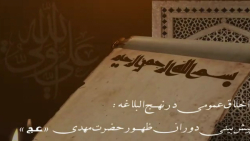 بسم الله الرحمن الرحیم
اخلاق عمومی در نهج البلاغه :
پیش بینی دوران ظهور حضرت مهدی «عج»